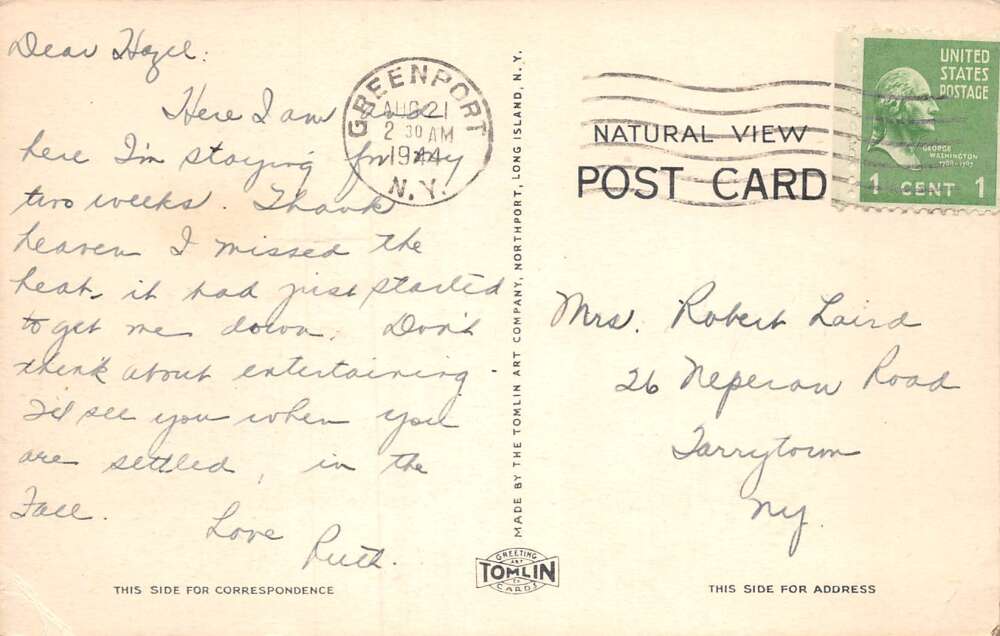 Dear Hazel:
Here I am and
here I'm staying for my
two weeks. Thank
heaven I missed the
heat, it had just started
to get me down. Don't
think about entertaining.
I'll see you when you
are settled, in the
Fall.
Love
Ruth.
THIS SIDE FOR CORRESPONDENCE
GREENPORT
AUG 21
2 30 AM
1944
N.Y.
MADE BY THE TOMLIN ART COMPANY, NORTHPORT, LONG ISLAND, N.Y.
GREETING
TOMLIN
CARDS
NATURAL VIEW
POST CARD
UNITED
STATES
POSTAGE
GEORGE
WASHINGTON
1789-1797
1 CENT 1
Mrs. Robert Laird
26 Neperan Road
Tarrytown
Ny.
THIS SIDE FOR ADDRESS